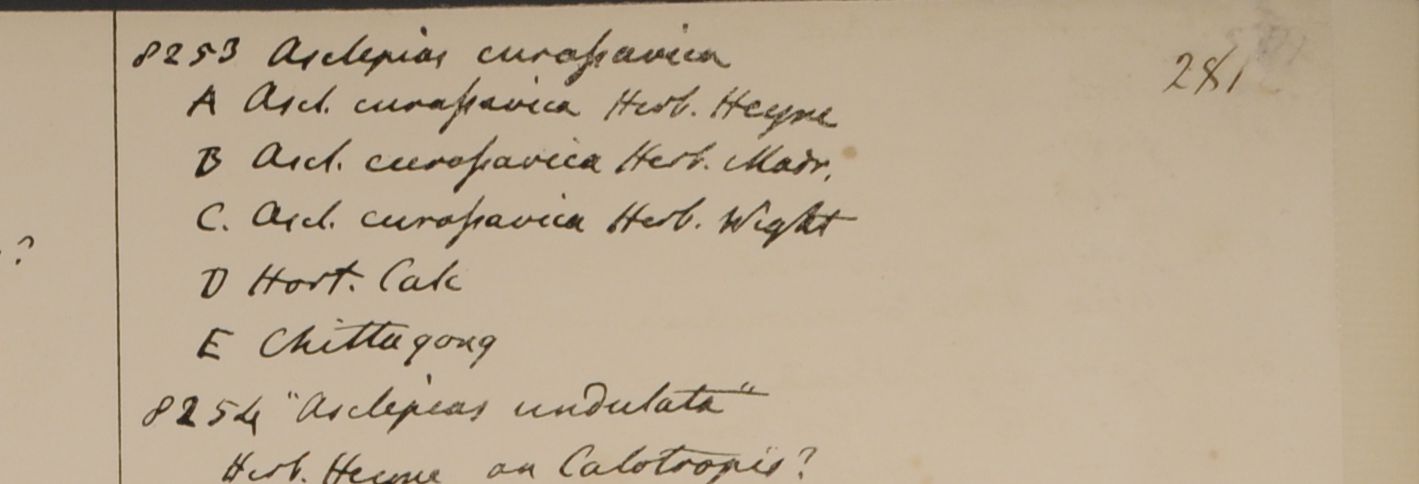 8253 Asclepias curaſsavica
281
A Ascl. curaſsavica Herb. Heyne
B Ascl. curaſsavica Herb. Madr.
C. Ascl. curaſsavica Herb. Wight
?
D Hort. Calc
E Chittagong
8254 "Asclepias undulata"
Herb. Heyne an Calotropis?